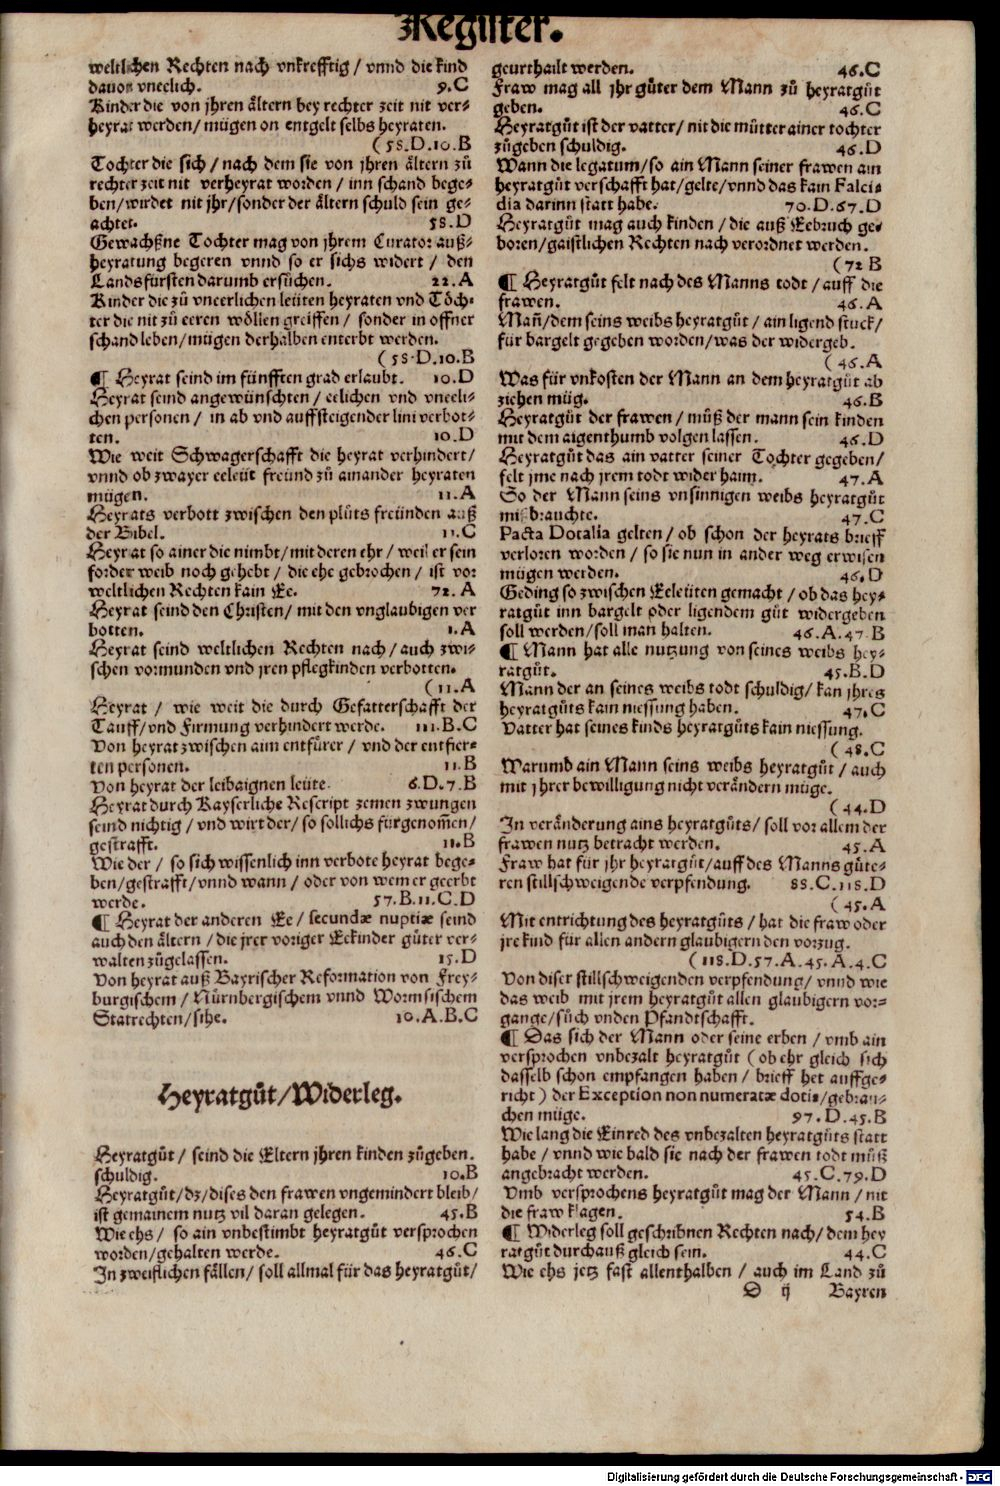 Register.
weltlichen Rechten nach vnkrefftig / vnnd die kind
dauon vneelich. 9.C
Kinder die von jhren ältern bey rechter zeit nit ver-
heyrat werden / mügen on entgelt selbs heyraten.
(58.D.10.B
Tochter die sich / nach dem sie von jhren ältern zů
rechter zeit nit verheyrat worden / inn schand bege-
ben / wirdet nit jhr / sonder der ältern schuld sein ge-
achtet. 58.D
Gewachßne Tochter mag von jhrem Curator auß-
heyratung begeren vnnd so er sichs widert / den
Landsfürsten darumb ersůchen. 22.A
Kinder die zů vneerlichen leüten heyraten vnd Töch-
ter die nit zů eeren wöllen greiffen / sonder in offner
schand leben / mügen derhalben enterbt werden.
(58.D.10.B
¶ Heyrat seind im fünfften grad erlaubt. 10.D
Heyrat seind angewünschten / eelichen vnd vneeli-
chen personen / in ab vnd auffsteigender lini verbot-
ten. 10.D
Wie weit Schwagerschafft die heyrat verhindert /
vnnd ob zwayer eeleüt freünd zů ainander heyraten
mügen. 11.A
Heyrats verbott zwischen den plůts freünden auß
der Bibel. 11.C
Heyrat so ainer die nimbt / mit deren ehr / weil er sein
forder weib noch gehebt / die ehe gebrochen / ist vor
weltlichen Rechten kain Ee. 72.A
Heyrat seind den Christen / mit den vnglaubigen ver
botten. 1.A
Heyrat seind weltlichen Rechten nach / auch zwi-
schen vormunden vnd jren pflegkinden verbotten.
(11.A
Heyrat / wie weit die durch Gefatterschafft der
Tauff / vnd Firmung verhindert werde. 111.B.C
Von heyrat zwischen aim entfürer / vnd der entfier-
ten personen. 11.B
Von heyrat der leibaignen leüte. 6.D.7.B
Heyrat durch Kayserliche Rescript zemen zwungen
seind nichtig / vnd wirt der / so sollichs fürgenom̃en /
gestrafft. 11.B
Wie der / so sich wissenlich inn verbote heyrat bege-
ben / gestrafft / vnnd wann / oder von wem er geerbt
werde. 57.B.11.C.D
¶ Heyrat der anderen Ee / secundæ nuptiæ seind
auch den ältern / die jrer voriger Eekinder güter ver-
walten zůgelassen. 15.D
Von heyrat auß Bayrischer Reformation von Frey-
burgischem / Nürnbergischem vnnd Wormsischem
Statrechten / sihe. 10.A.B.C
Heyratgůt / Widerleg.
Heyratgůt / seind die Eltern jhren kinden zůgeben.
schuldig. 10.B
Heyratgůt / dz / dises den frawen vngemindert bleib /
ist gemainem nutz vil daran gelegen. 45.B
Wie ehs / so ain vnbestimbt heyratgůt versprochen
worden / gehalten werde. 46.C
In zweiflichen fällen / soll allmal für das heyratgůt /
geurthailt werden. 46.C
Fraw mag all jhr güter dem Mann zů heyratgůt
geben. 46.C
Heyratgůt ist der vatter / nit die můtter ainer tochter
zůgeben schuldig. 46.D
Wann die legatum / so ain Mann seiner frawen ain
heyratgůt verschafft hat / gelte / vnnd das kain Falci-
dia darinn statt habe. 70.D.67.D
Heyratgůt mag auch kinden / die auß Eebruch ge-
boren / gaistlichen Rechten nach verordnet werden.
(72 B
¶ Heyratgůt felt nach des Manns todt / auff die
frawen. 46.A
Man̄ / dem seins weibs heyratgůt / ain ligend stuck /
für bargelt gegeben worden / was der widergeb.
(46.A
Was für vnkosten der Mann an dem heyratgůt ab
ziehen müg. 46.B
Heyratgůt der frawen / můß der mann sein kinden
mit dem aigenthumb volgen lassen. 46.D
Heyratgůt das ain vatter seiner Tochter gegeben /
felt jme nach jrem todt wider haim. 47.A
So der Mann seins vnsinnigen weibs heyratgůt
mißbrauchte. 47.C
Pacta Dotalia gelten / ob schon der heyrats brieff
verloren worden / so sie nun in ander weg erwisen
mügen werden. 46.D
Geding so zwischen Eeletiten gemacht / ob das hey-
ratgůt inn bargelt oder ligendem gůt widergeben
soll werden / soll man halten. 46.A.47.B
¶ Mann hat alle nutzung von seines weibs hey-
ratgůt. 45.B.D
Mann der an seines weibs todt schuldig / kan jhres
heyratgůts kain niessung haben. 47.C
Vatter hat seines kinds heyratgůts kain niessung.
(48.C
Warumb ain Mann seins weibs heyratgůt / auch
mit jhrer bewilligung nicht verändern müge.
(44.D
In veränderung ains heyratgůts / soll vor allem der
frawen nutz betracht werden. 45.A
Fraw hat für jhr heyratgůt / auff des Manns güte-
ren stillschweigende verpfendung. 88.C.118.D
(45.A
Mit entrichtung des heyratgůts / hat die fraw oder
jre kind für allen andern glaubigern den vorzug.
(118.D.57.A.45.A.4.C
Von diser stillschweigenden verpfendung / vnnd wie
das weib mit jrem heyratgůt allen glaubigern vor-
gange / sůch vnden Pfandtschafft.
¶ Das sich der Mann oder seine erben / vmb ain
versprochen vnbezalt heyratgůt (ob ehr gleich sich
dasselb schon empfangen haben / brieff het auffge-
richt) der Exception non numeratæ dotis / gebrau-
chen müge. 97.D.45.B
Wie lang die Einred des vnbezalten heyratgůts statt
habe / vnnd wie bald sie nach der frawen todt můß
angebracht werden. 45.C.79.D
Vmb versprochens heyratgůt mag der Mann / nit
die fraw klagen. 54.B
¶ Widerleg soll geschribnen Rechten nach / dem hey
ratgůt durchauß gleich sein. 44.C
Wie ehs jetz fast allenthalben / auch im Land zů
D ij Bayren
Digitalisierung gefördert durch die Deutsche Forschungsgemeinschaft - DFG